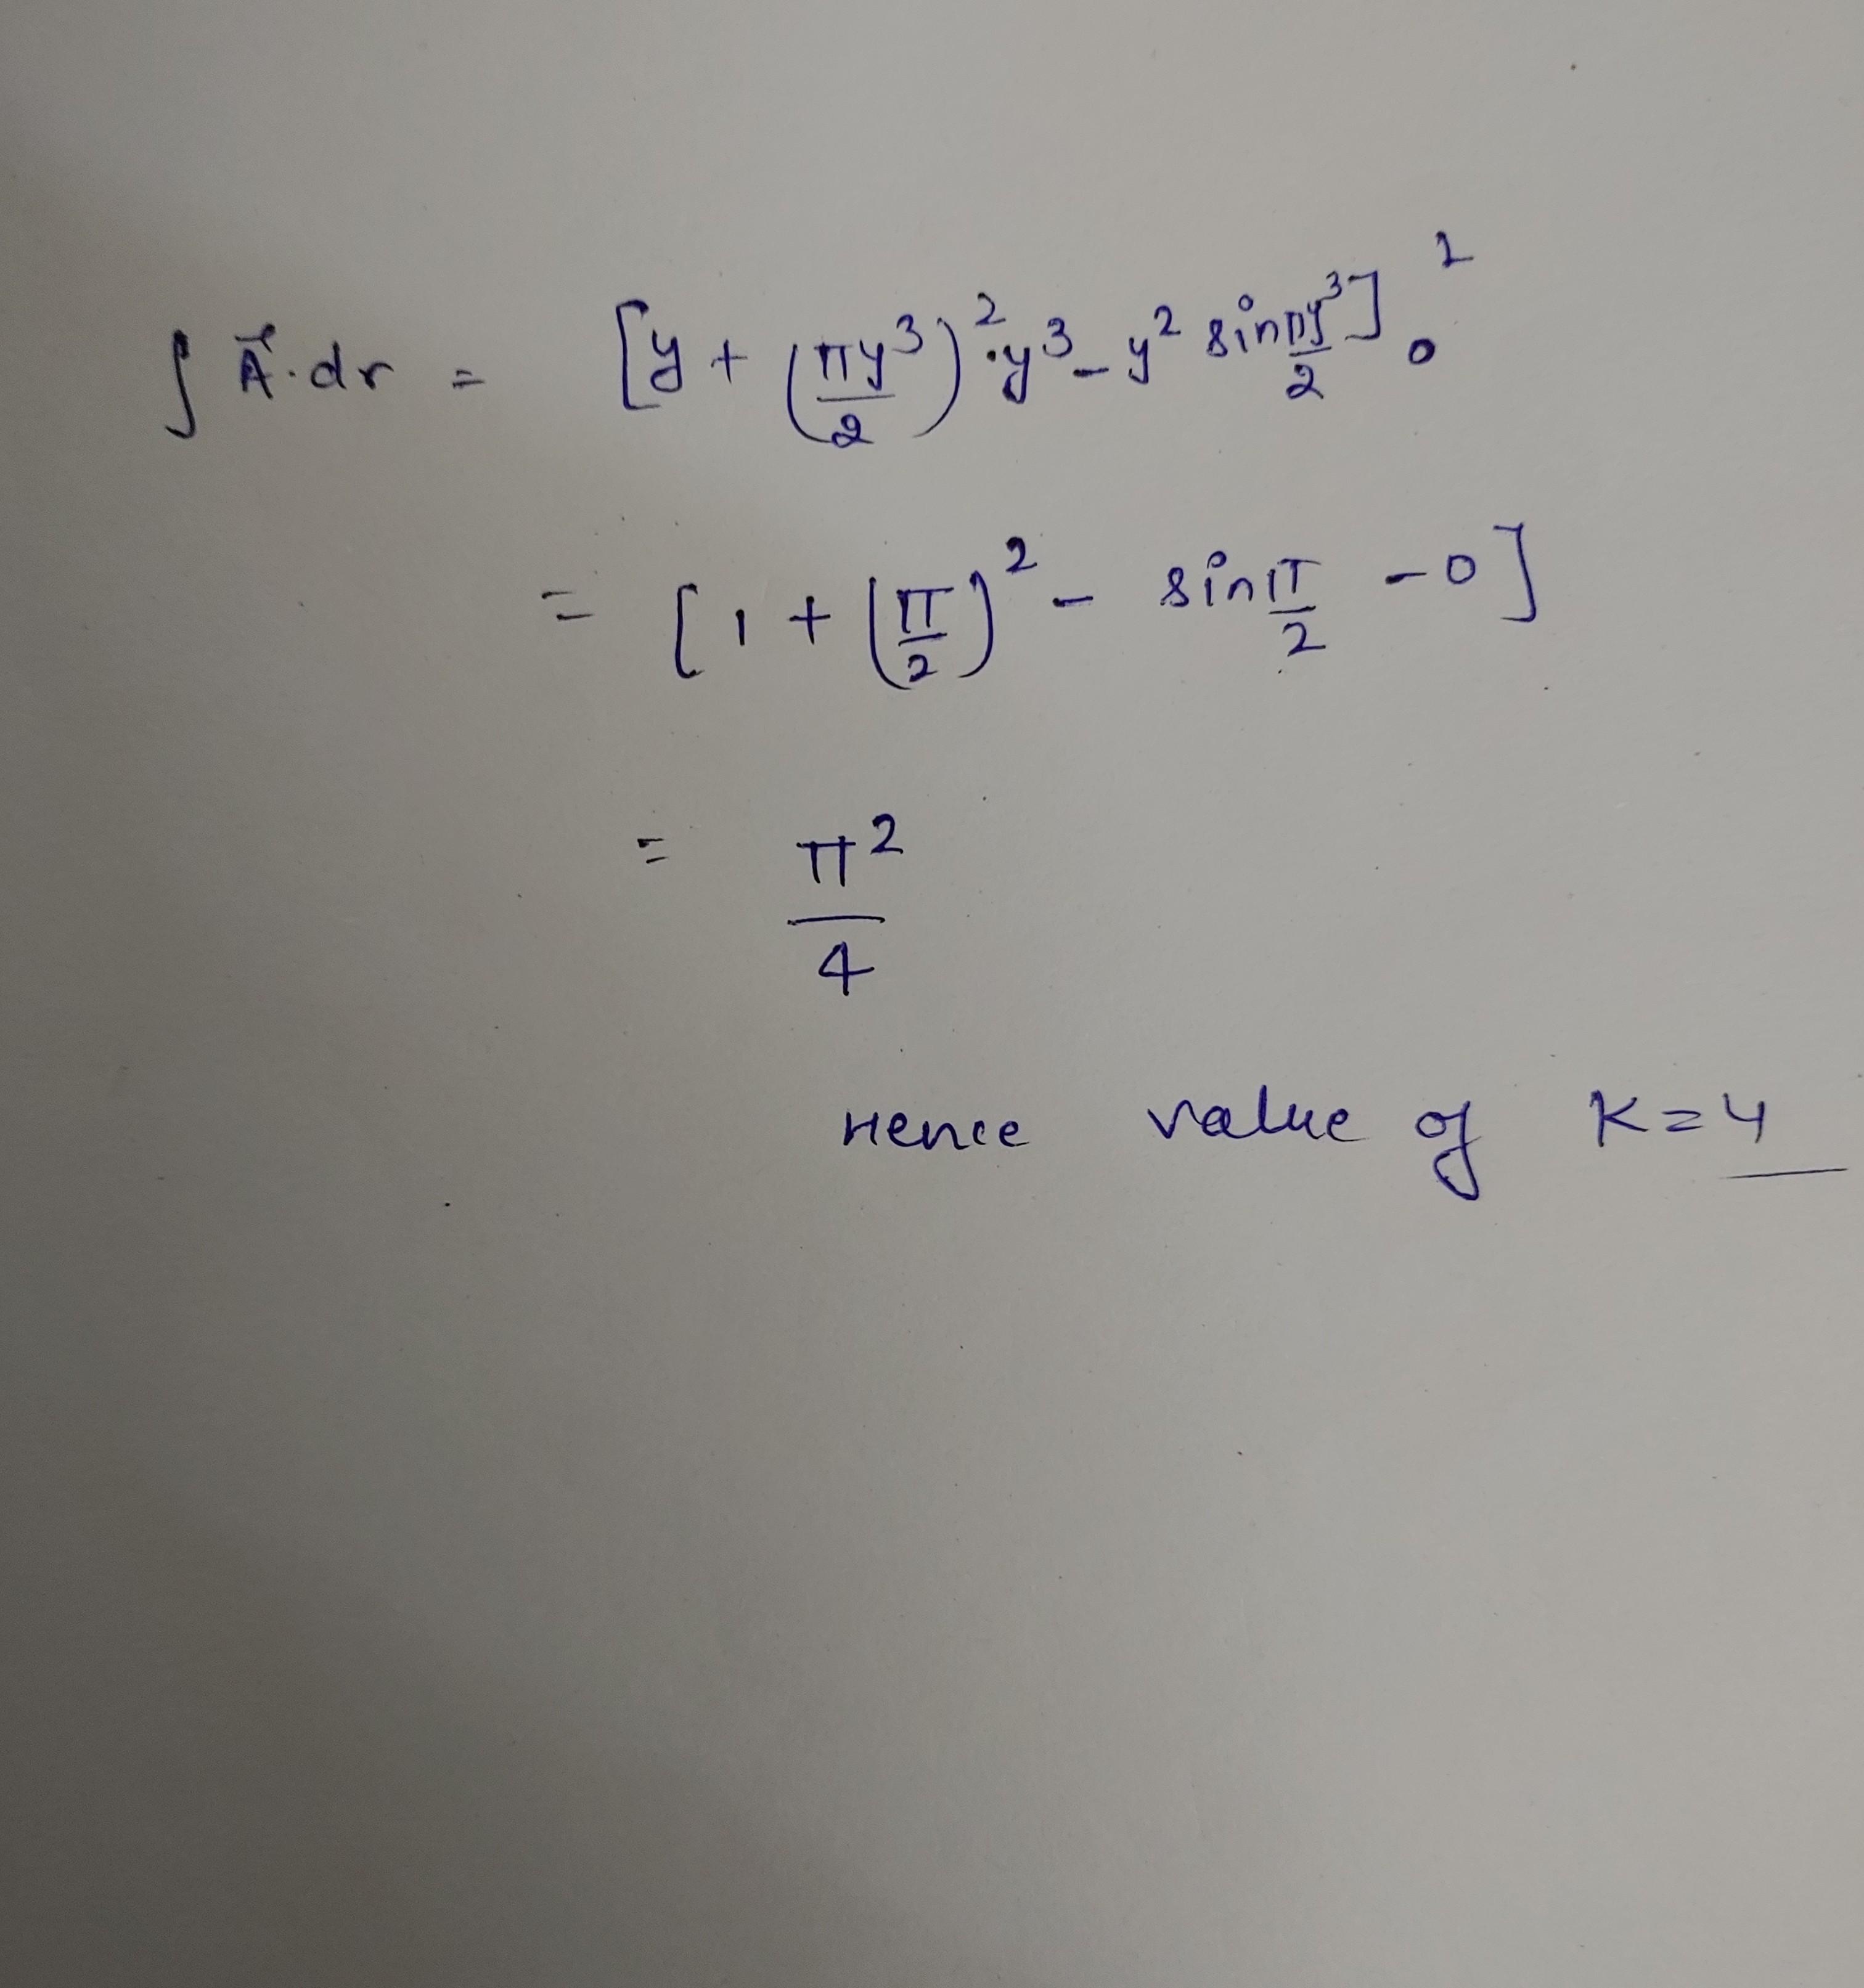 ∫ A⃗.dr = [y + (πy³/2)².y³ - y² sin πy³/2]₀²
= [1 + (π/2)² - sin π/2 - 0]
= π²/4
Hence value of K=4